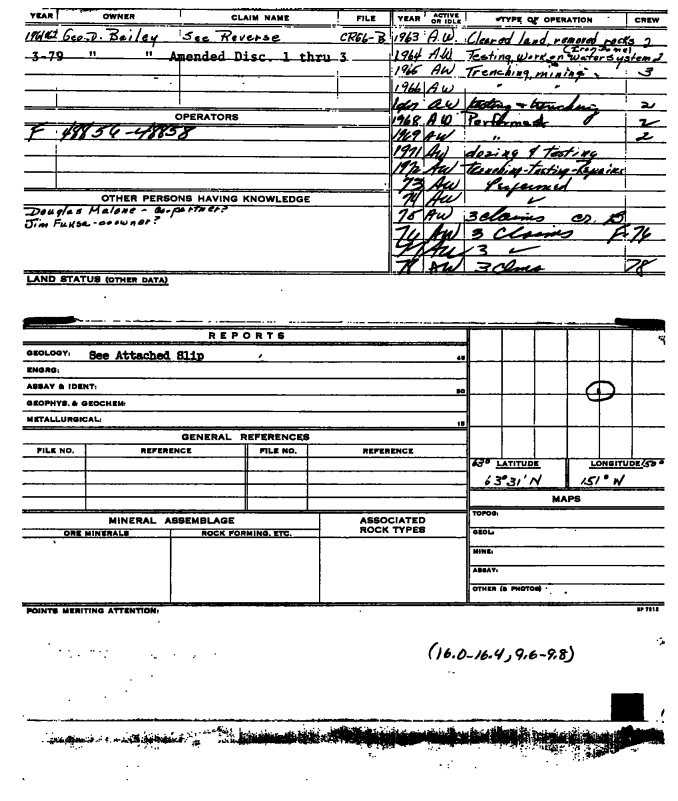 YEAR OWNER CLAIM NAME FILE YEAR ACTIVE OR IDLE TYPE OF OPERATION CREW
Geo. D. Bailey See Reverse CR66-B 1963 A.W. Cleared land, removed rocks 2
3-79 " " Amended Disc. 1 thru 3 1964 AW Testing, work on water system 2
(Iron Dome)
1965 AW Trenching, mining 3
1966 AW " "
AW testing & trenching 2
OPERATORS 1968 AW Performed 2
F 49856-49858 1969 AW " 2
1971 AW dozing & testing
1972 AW trenching-Testing-Repairs
73 AW Performed
OTHER PERSONS HAVING KNOWLEDGE 74 AW ✓
Douglas Malone - co-partner? 75 AW 3 claims
Jim Fuksa - coowner? 76 AW 3 Claims F-76
77 AW 3 ✓
78 AW 3 clms 78
LAND STATUS (OTHER DATA)
REPORTS
GEOLOGY: See Attached Slip
ENGRG:
ASSAY & IDENT:
GEOPHYS. & GEOCHEM:
METALLURGICAL:
GENERAL REFERENCES
FILE NO. REFERENCE FILE NO. REFERENCE
63° LATITUDE LONGITUDE 150°
63°31'N 151°W
MAPS
MINERAL ASSEMBLAGE ASSOCIATED ROCK TYPES TOPOG:
ORE MINERALS ROCK FORMING, ETC. GEOL:
MINE:
ASSAY:
OTHER (& PHOTOS)
POINTS MERITING ATTENTION:
(16.0-16.4, 9.6-9.8)